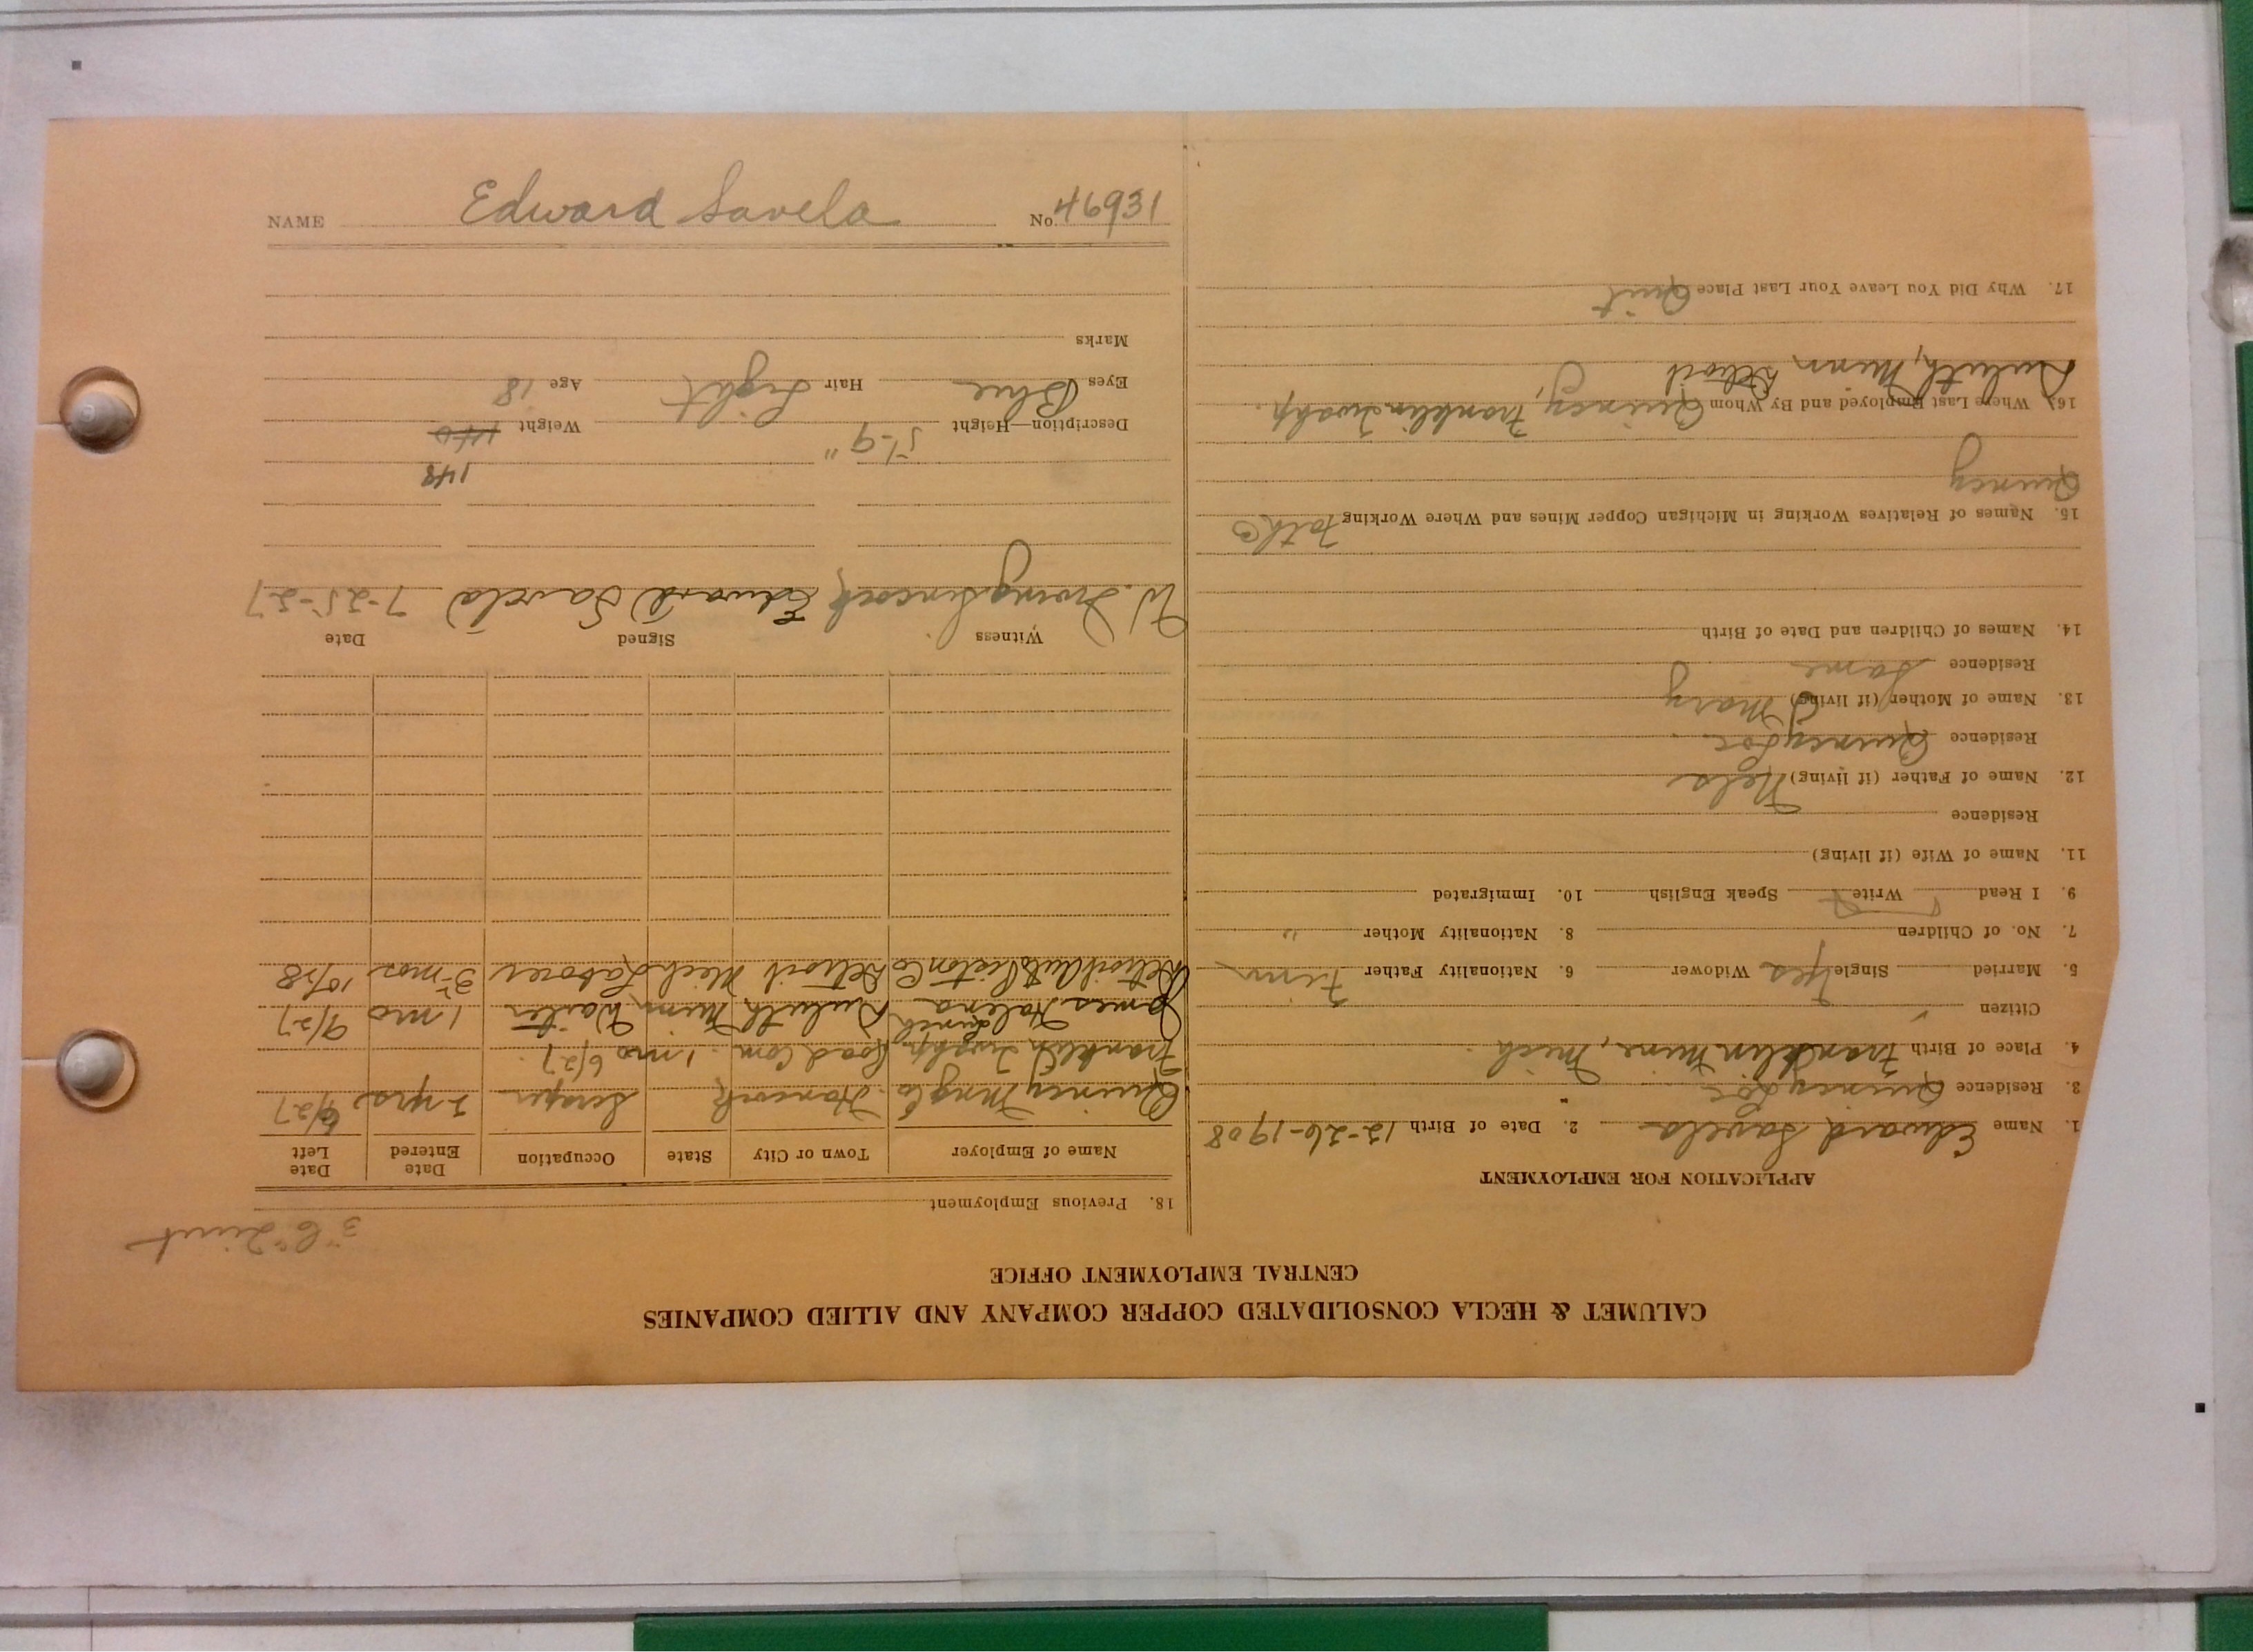 NAME Edward Savela No. 46931
CALUMET & HECLA CONSOLIDATED COPPER COMPANY AND ALLIED COMPANIES
CENTRAL EMPLOYMENT OFFICE
APPLICATION FOR EMPLOYMENT
1. Name Edward Savela 2. Date of Birth 12-26-1908
3. Residence Quincy Loc
4. Place of Birth Franklin Mine, Mich.
Citizen
5. Married Single Yes Widower 6. Nationality Father Finn
7. No. of Children 8. Nationality Mother "
9. I Read Write Speak English 10. Immigrated
11. Name of Wife (if living)
Residence
12. Name of Father (if living) Nels
Residence Quincy Loc.
13. Name of Mother (if living) Mary
Residence Same
14. Names of Children and Date of Birth
15. Names of Relatives Working in Michigan Copper Mines and Where Working Father
Quincy
16. Where Last Employed and By Whom Quincy, Franklin Twshp.
Duluth, Minn Detroit
17. Why Did You Leave Your Last Place Quit
18. Previous Employment
Name of Employer Town or City State Occupation Date Entered Date Left
Quincy Mng Co Hancock Scraper 2 yrs 6/27
Franklin Twshp. Road Com. 1 mo 6/27
James Halena Lunch Duluth Minn Waiter 1 mo 9/27
Detroit Mich Laborer 3 mos 10/28
Witness Signed Date
W. Irving Lincock Edward Savela 7-25-27
148
Description—Height 5'-9" Weight 140
Eyes Blue Hair Light Age 18
Marks